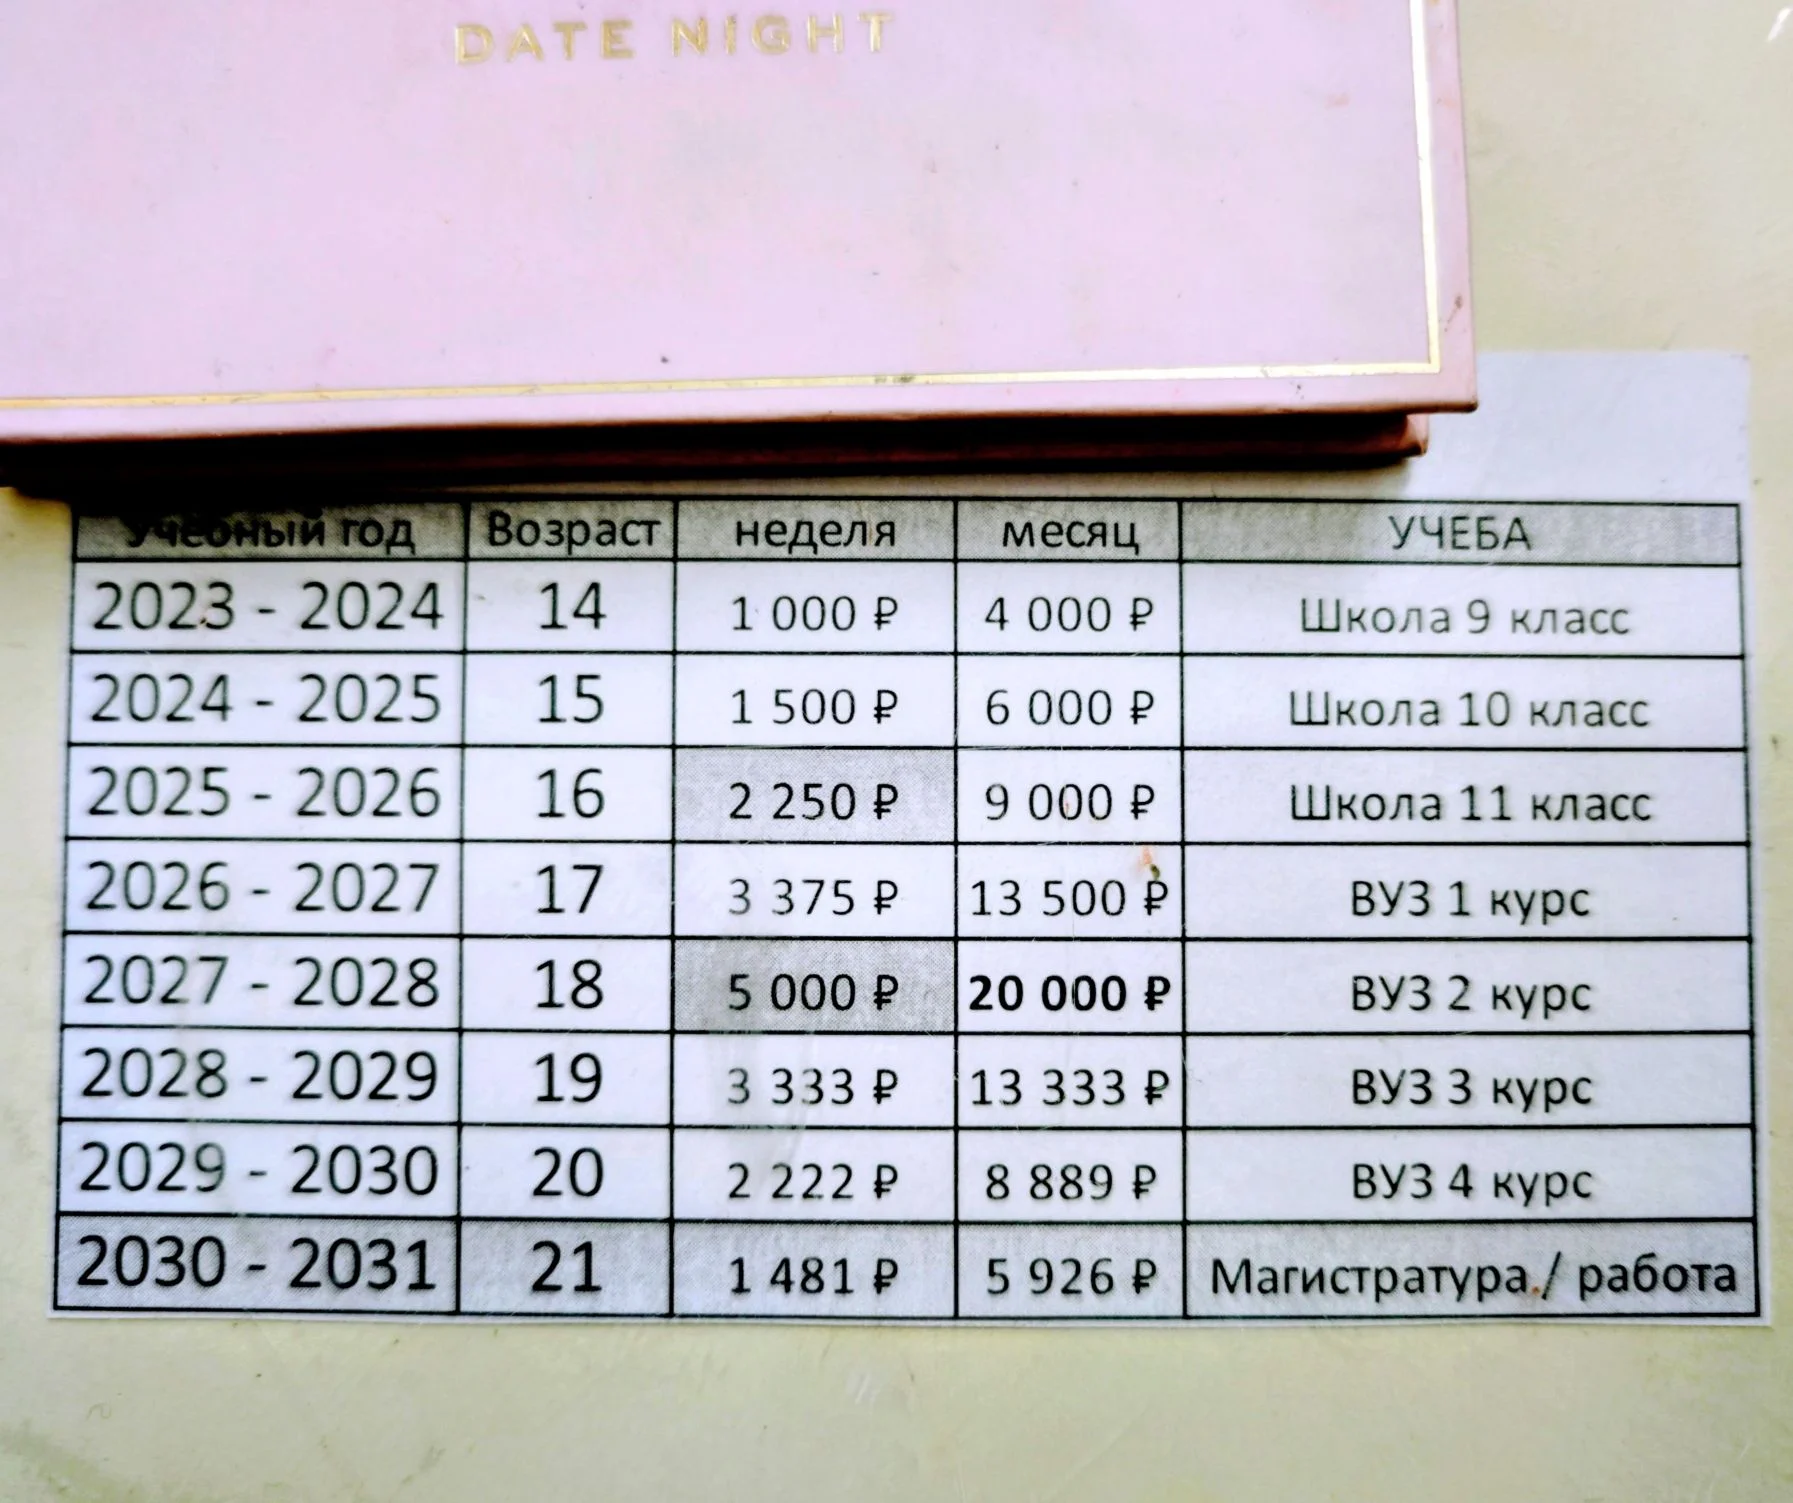 DATE NIGHT
Учебный год Возраст неделя месяц УЧЕБА
2023 - 2024 14 1 000 ₽ 4 000 ₽ Школа 9 класс
2024 - 2025 15 1 500 ₽ 6 000 ₽ Школа 10 класс
2025 - 2026 16 2 250 ₽ 9 000 ₽ Школа 11 класс
2026 - 2027 17 3 375 ₽ 13 500 ₽ ВУЗ 1 курс
2027 - 2028 18 5 000 ₽ 20 000 ₽ ВУЗ 2 курс
2028 - 2029 19 3 333 ₽ 13 333 ₽ ВУЗ 3 курс
2029 - 2030 20 2 222 ₽ 8 889 ₽ ВУЗ 4 курс
2030 - 2031 21 1 481 ₽ 5 926 ₽ Магистратура / работа